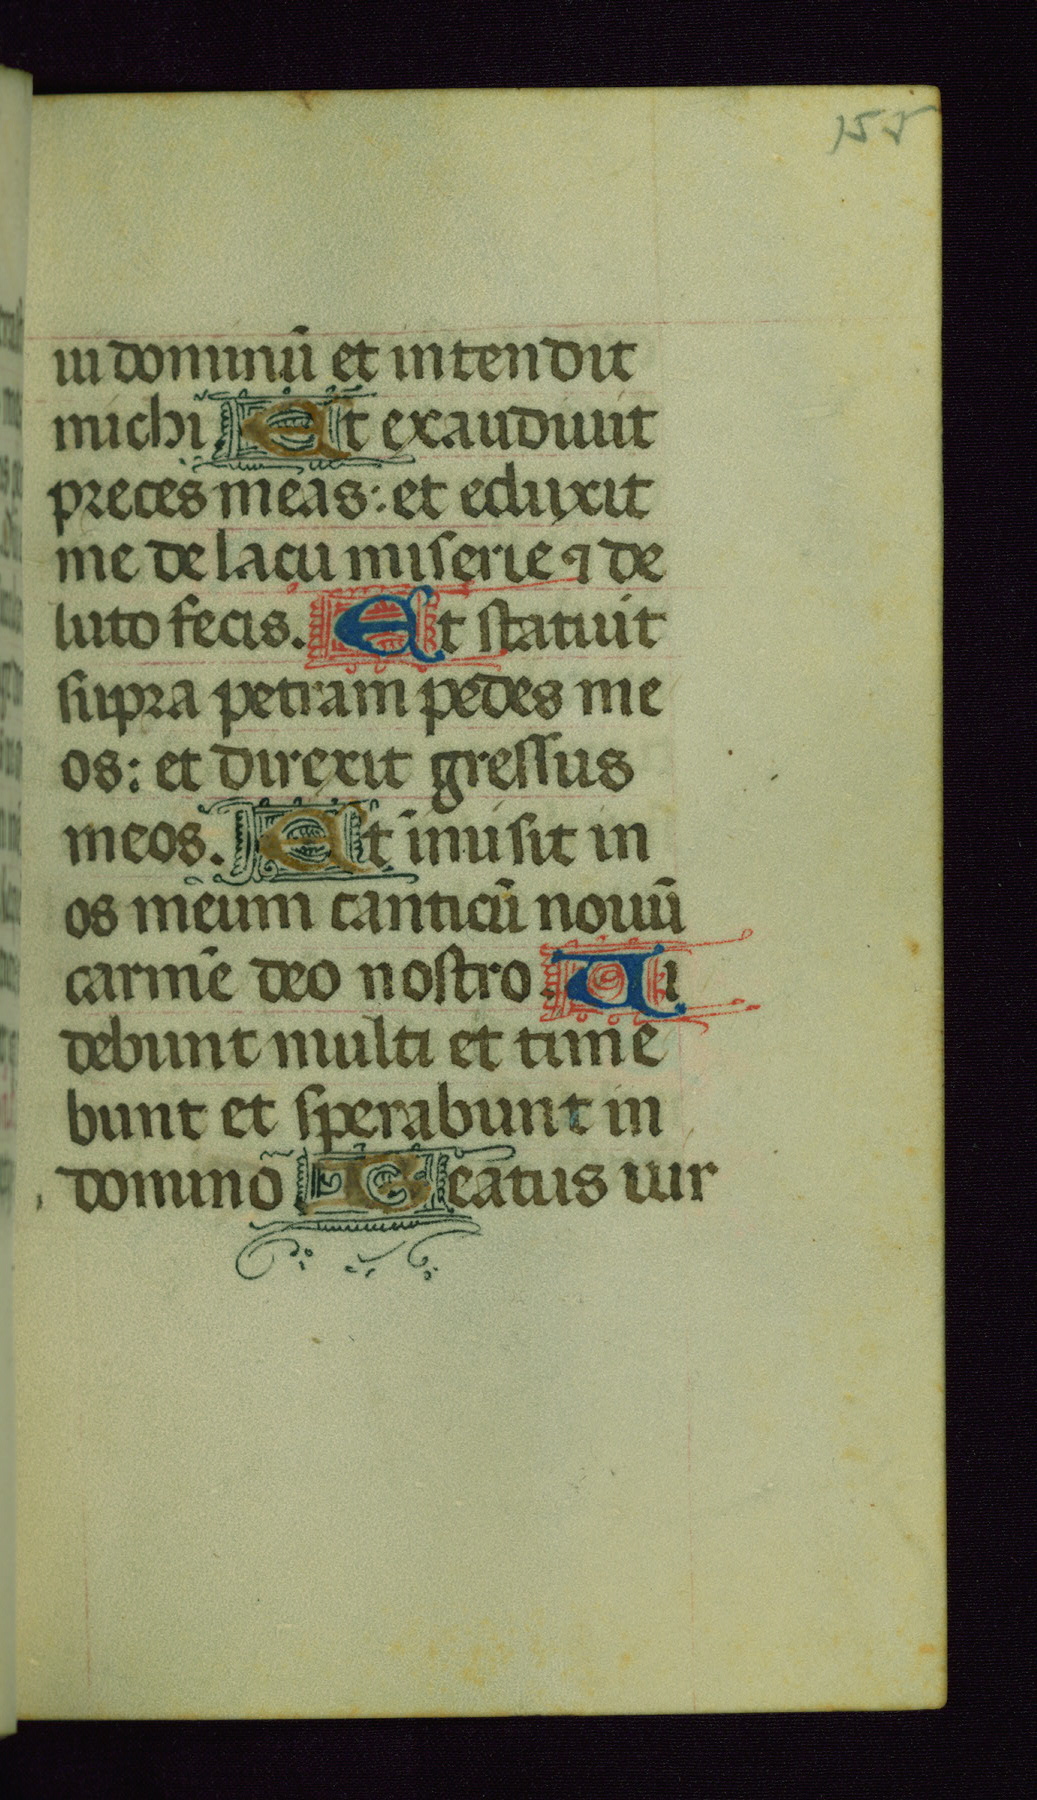 155
ui dominū et intendit
michi Et exaudiuit
preces meas: et eduxit
me de lacu miserie ⁊ de
luto fecis. Et statuit
supra petram pedes me
os: et direxit gressus
meos. Et īmisit in
os meum canticū nouū
carmē deo nostro. Ui
debunt multi et time
bunt et sperabunt in
domino Beatus uir